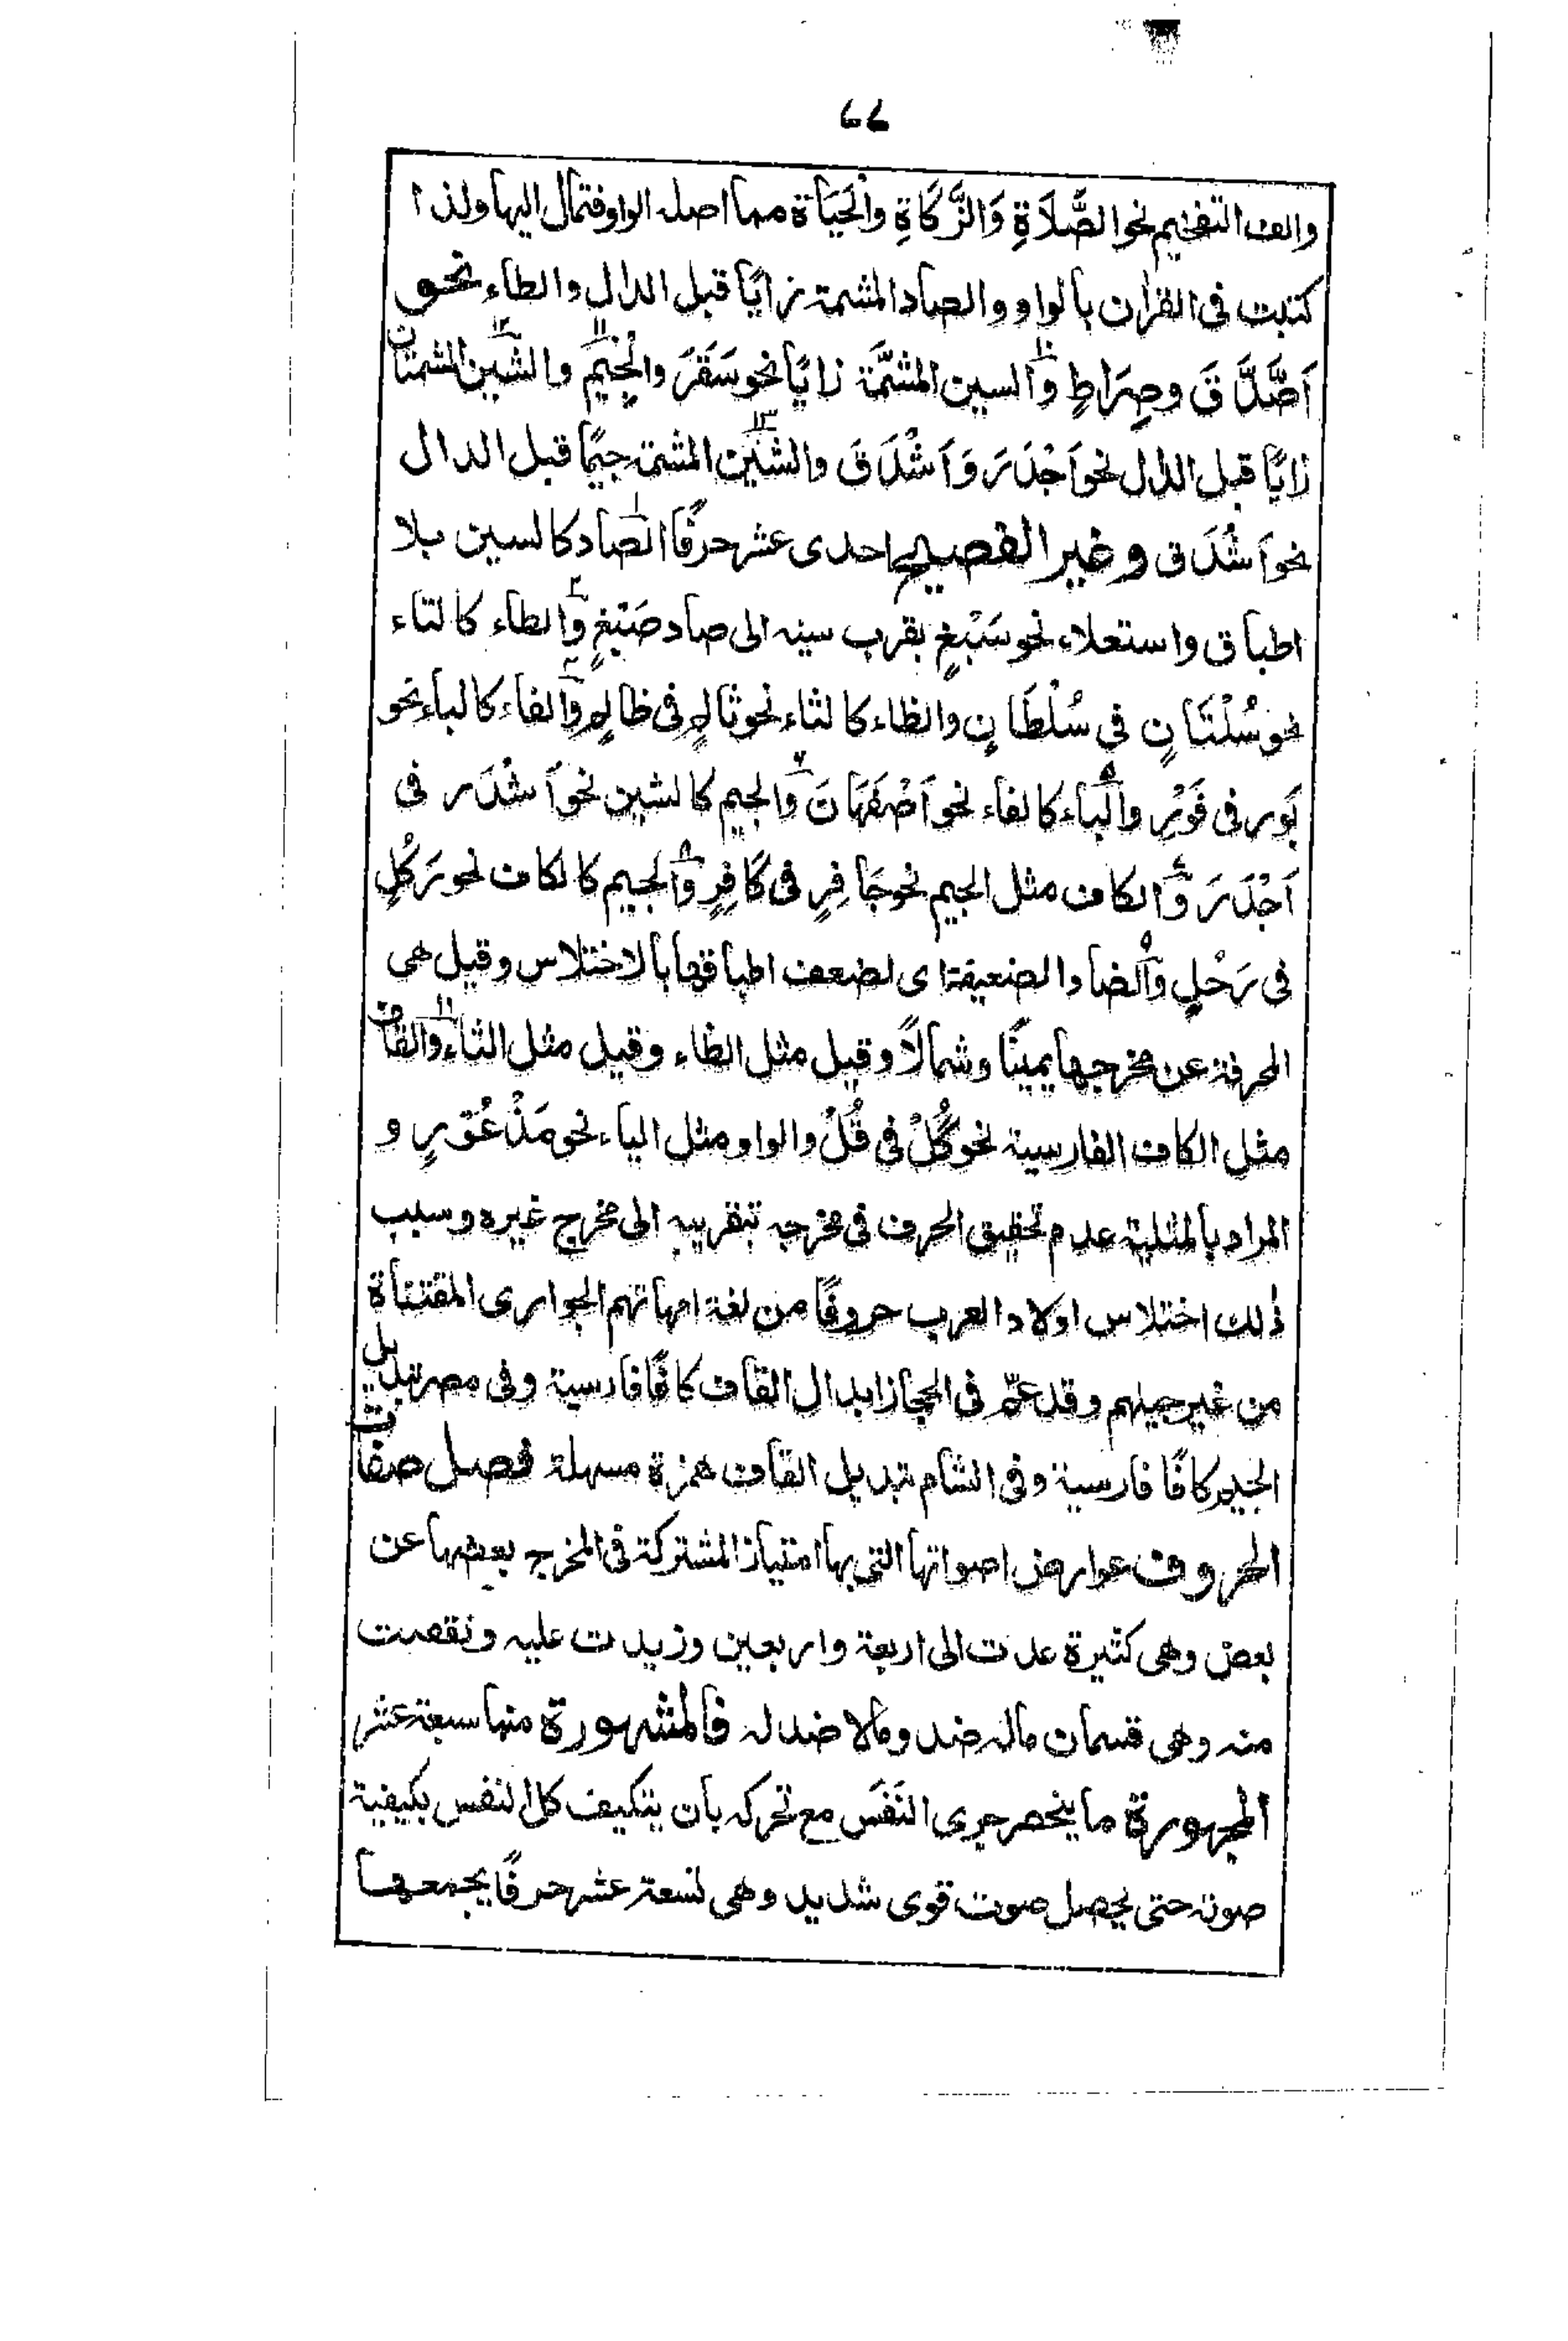 ٦٦
والف التفخيم نحو الصَّلَاةِ وَالزَّكَاةِ وَالْحَيَاة مما اصله الواو فتمال اليها ولذا
كتبت فى القرأن بالواو والصاد المشمة زايًا قبل الدال والطاء نحو
اَصَّدَّقَ وصِرَاطٍ وَالسين المشمَّة زايًا نحو سَقَرَ والجِيْم والشين المشمتان
زايًا قبل الدال نحو اَجْدَرَ وَاَشْدَقَ والشين المشمة جيمًا قبل الدال
نحو اَشْدَق وغير الفصيح احدى عشر حرفًا الصاد كالسين بلا
اطباق واستعلاء نحو سَبْغٍ بقرب سينه الى صاد صَبْغٍ والطاء كالتاء
نحو سُلْتَانٍ فى سُلْطَانٍ والظاء كالثاء نحو ثالمٍ فى ظالمٍ والفاء كالباء نحو
بَور فى فَوْرٍ والباء كالفاء نحو اَصْفَهَانَ والجيم كالشين نحو اَشْدَر فى
اَجْدَرَ والكاف مثل الجيم نحو جَافِرٍ فى كَافِرٍ والجيم كالكاف نحو رَكُلٍ
فى رَجُلٍ والضاد الضعيفة اى لضعف اطباقها بالاختلاس وقيل هى
المحرفة عن مخرجها يمينًا وشمالًا وقيل مثل الظاء وقيل مثل الثاء والقاف
مثل الكاف الفارسية نحو گُلْ فى قُلْ والواو مثل الياء نحو مَذْعُوْرٍ و
المراد بالمثلية عدم تحقيق الحرف فى مخرجه بتقريبه الى مخرج غيره وسبب
ذلك اختلاس اولاد العرب حروفًا من لغة امهاتهم الجوارى المقتناة
من غير جيلهم وقد عمّ فى الحجاز ابدال القاف كافًا فارسية وفى مصر تبديل
الجيم كافًا فارسية وفى الشام تبديل القاف همزة مسهلة فصل صفات
الحروف عوارض اصواتها التى بها امتياز المشتركة فى المخرج بعضها عن
بعض وهى كثيرة عدت الى اربعة واربعين وزيدت عليه ونقصت
منه وهى قسمان ماله ضد ومالا ضد له فالمشهورة منها سبعة عشر
المجهورة ما ينحصر جرى النَفَس مع تحركه بان يتكيف كل النفس بكيفية
صوته حتى يحصل صوت قوى شديد وهى تسعة عشر حرفًا يجمعها